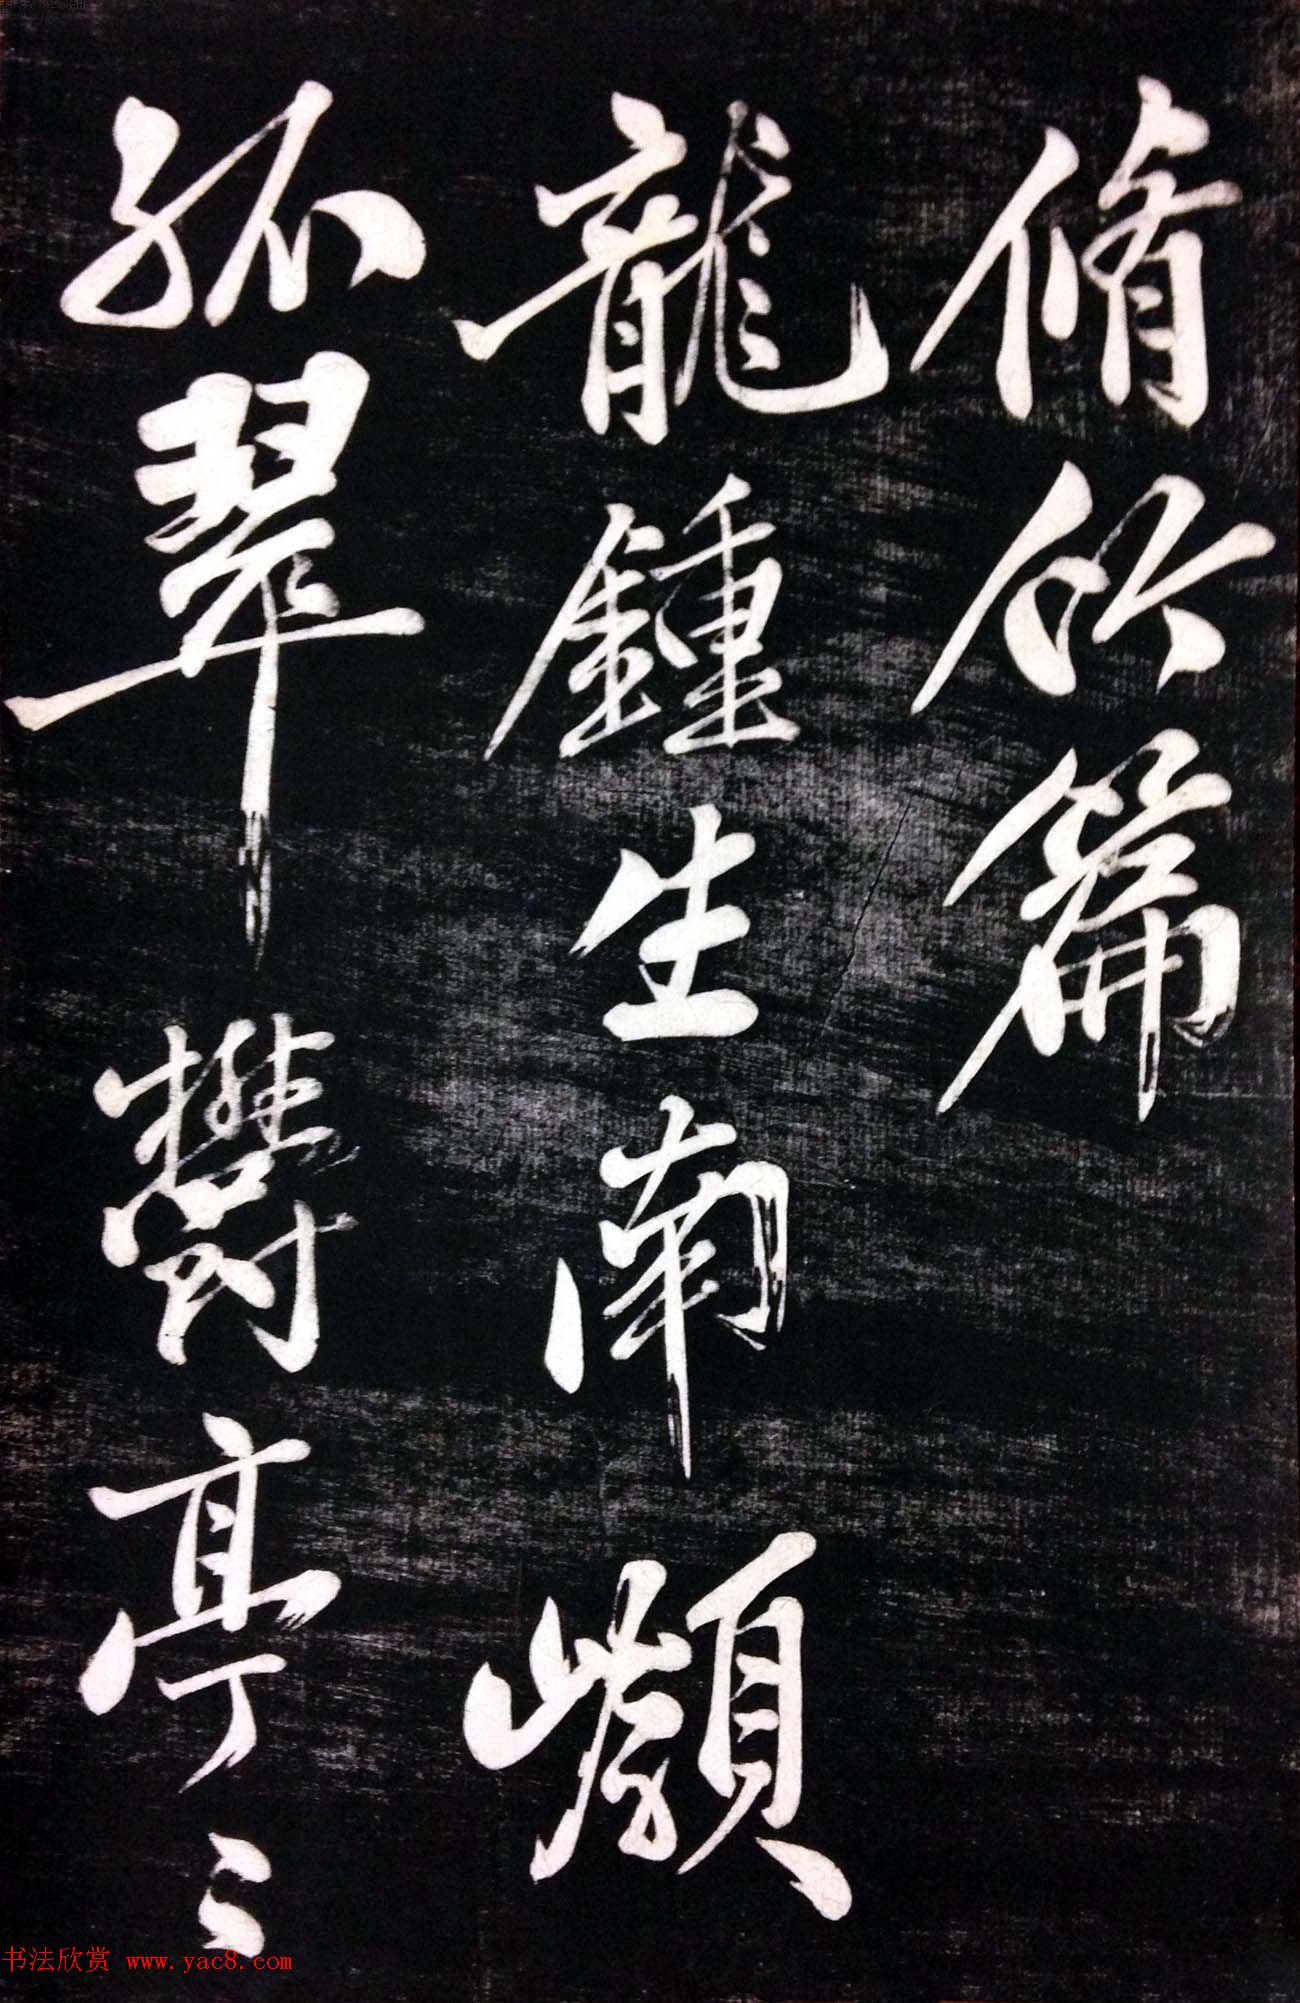 脩竹篇
龍鍾生南嶽
孤翠鬱亭〻
书法欣赏 www.yac8.com